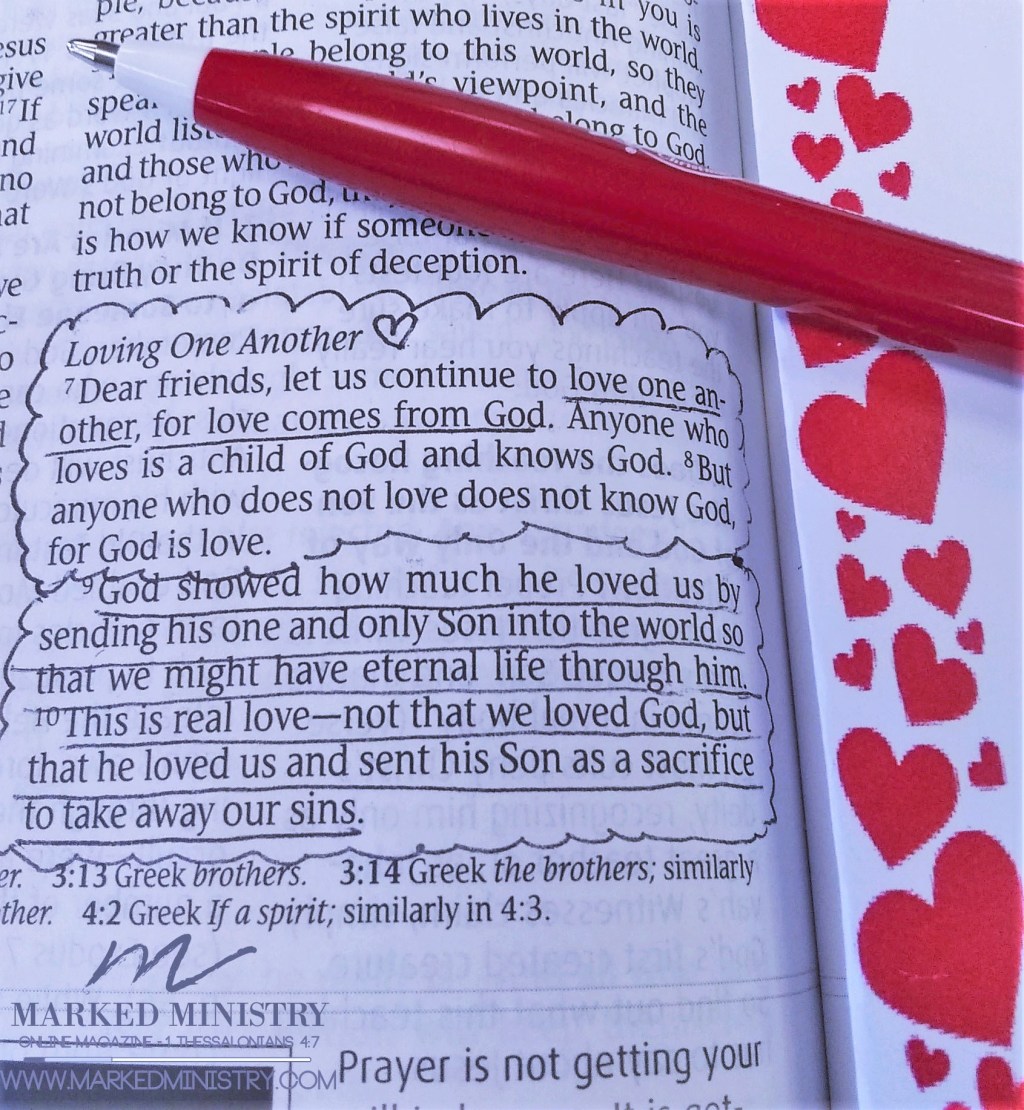 esus
give
17If
nd
no
hat
ve
you is
greater than the spirit who lives in the world.
belong to this world, so they
viewpoint, and the
world
belong to God
and those who
not belong to God,
is how we know if someone
truth or the spirit of deception.
Loving One Another
7Dear friends, let us continue to love one an-
other, for love comes from God. Anyone who
loves is a child of God and knows God. 8But
anyone who does not love does not know God,
for God is love.
9God showed how much he loved us by
sending his one and only Son into the world so
that we might have eternal life through him.
10This is real love—not that we loved God, but
that he loved us and sent his Son as a sacrifice
to take away our sins.
er. 3:13 Greek brothers. 3:14 Greek the brothers; similarly
ther. 4:2 Greek If a spirit; similarly in 4:3.
m
MARKED MINISTRY
ONLINE MAGAZINE - 1 THESSALONIANS 4:7
WWW.MARKEDMINISTRY.COM
Prayer is not getting your